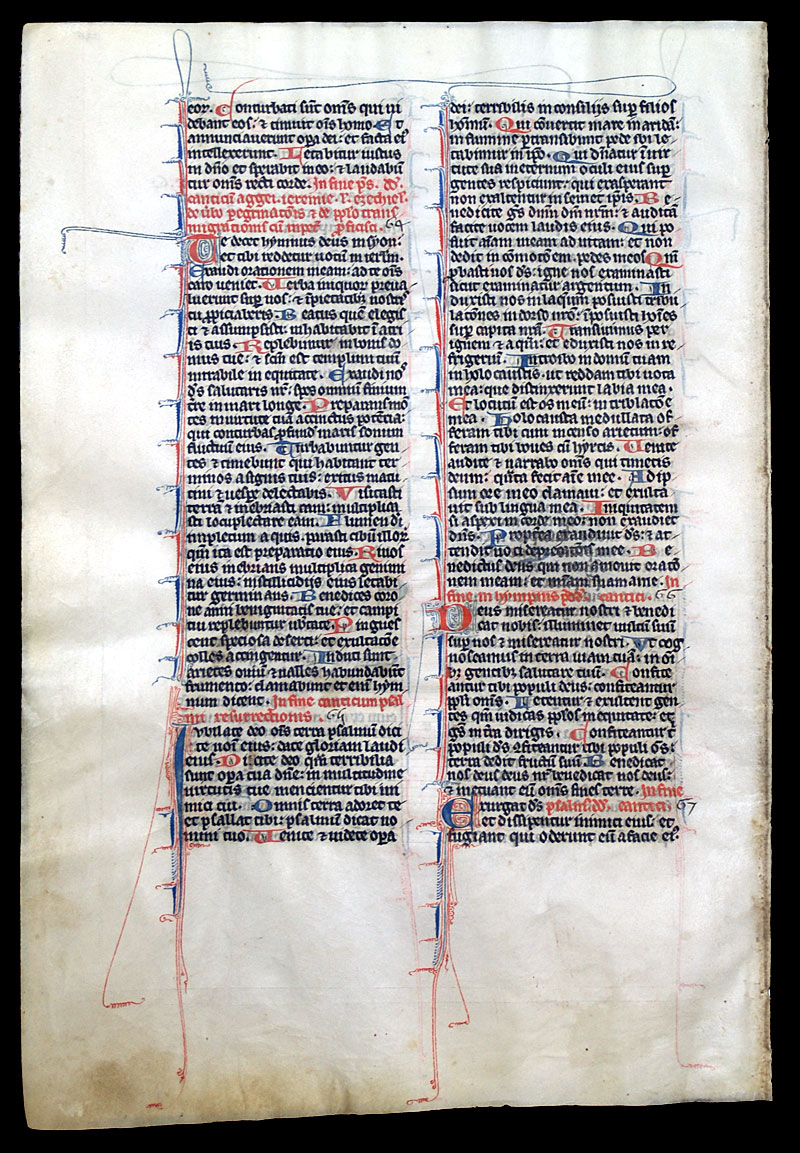 eor. Conturbati sūt om̄s qui ui
debant eos: & timuit oīs homo. Et
annunciauerunt opa dei: et facta eī
intellexerunt. Letabitur iustus
in dn̄o et sperabit in eo: & laudabū
tur om̄s recti corde. In fine ps. dd̄.
canticū aggei. ieremie.
migrationis cū
64
Te decet hymnus deus in syon:
et tibi reddetur uotū in ierlm̄.
Exaudi orationem meam: ad te oīs
caro ueniet. Uerba iniquor preua
luerunt sup nos: & īpietatib; nostris
tu ppiciaberis. Beatus quē elegis
ti & assumpsisti: inhabitabit ī atri
is tuis. Replebimur in bonis do
mus tue: & scm̄ est templum tuū
mirabile in equitate. Exaudi nos
ds̄ salutaris nr̄: spes omniū finium
terre in mari longe. Preparans mō
tes in uirtute tua accinctus potētia:
qui conturbas pfundū maris sonum
fluctuū eius. Turbabuntur gen
tes & timebunt qui habitant ter
minos a signis tuis: exitus matu
tini & uespe delectabis. Visitasti
terrā & inebriasti eam: multiplica
sti locupletare eam. Flumen dī
impletum aquis. parasti cibū illor
qm̄ ita est preparatio eius. Riuos
eius inebrians multiplica genimi
na eius: in stillicidijs eius letabi
tur germinans. Benedices coro
ne anni benignitatis tue: et campi
tui replebuntur ubtate. Pingues
cent speciosa deserti: et exultatōe
colles accingentur. Induti sunt
arietes ouiū & ualles habundabūt
frumento: clamabunt et enī hym
num dicent. In fine canticum psal
mi resurrectionis. 65
Iubilate deo oīs terra psalmū dici
te noī eius: date gloriam laudi
eius. Dicite deo qm̄ terribilia
sunt opa tua dn̄e: in multitudine
uirtutis tue mentientur tibi ini
mici tui. Omnis terra adoret te
et psallat tibi: psalmū dicat no
mini tuo. Uenite & uidete opa
dei: terribilis in consilijs sup filios
hōīm. Qui cōuertit mare in aridā:
in flumine ptransibunt pede ibi le
tabimur in ipo. Qui dn̄atur ī uir
tute sua in eternum oculi eius sup
gentes respiciunt: qui exasperant
non exaltentur in semet ipis. Be
nedicite gs̄ dm̄ nr̄m: & auditā
facite uocem laudis eius. Qui po
suit aīam meam ad uitam: et non
dedit in cōmotōem pedes meos. Qm̄
pbasti nos ds̄: igne nos examinasti
sicut examinatur argentum. In
duxisti nos in laqueū posuisti tribu
latōnes in dorso nrō: īposuisti hoīes
sup capita nrā. Transiuimus per
ignem & aqm̄: et eduxisti nos in re
frigerium. Introibo in domū tuam
in holocaustis: ut reddam tibi uota
mea: que distinxerunt labia mea.
Et locutū est os meū: in tribulatōe
mea. Holocausta medullata of
feram tibi cum incenso arietum: of
feram tibi boues cū hyrcis. Uenite
audite & narrabo om̄s qui timetis
deum: quāta fecit aīe mee. Ad ip
sum ore meo clamaui: et exulta
uit sub lingua mea. Iniquitatem
si aspexi in corde meo: non exaudiet
dn̄s. Propterea exaudiuit ds̄: & at
tendit uoci deprecatōis mee. Be
nedictus deus qui non amouit oratō
nem meam: et misam suam a me. In
fine. in hympnis ps. dd̄. cantici. 66
Deus misereatur nostri & benedi
cat nobis: illuminet uultū suū
sup nos & misereatur nostri. Vt cog
noscamus in terra uiam tuā: in oī
b; gentib; salutare tuū. Confite
antur tibi populi deus: confiteantur
ppli om̄s. Letentur & exultent gen
tes qm̄ iudicas pplos in equitate: et
gs̄ in trā dirigis. Confiteantur t̄
populi ds̄ 9fiteantur tibi populi os̄:
terra dedit fructū suū. Benedicat
nos deus deus nr̄ benedicat nos deus:
& metuant eū om̄s fines terre. In fine
Exurgat ds̄ psalm. dd̄. cantici. 67
et dissipentur inimici eius: et
fugiant qui oderunt eū a facie eī.